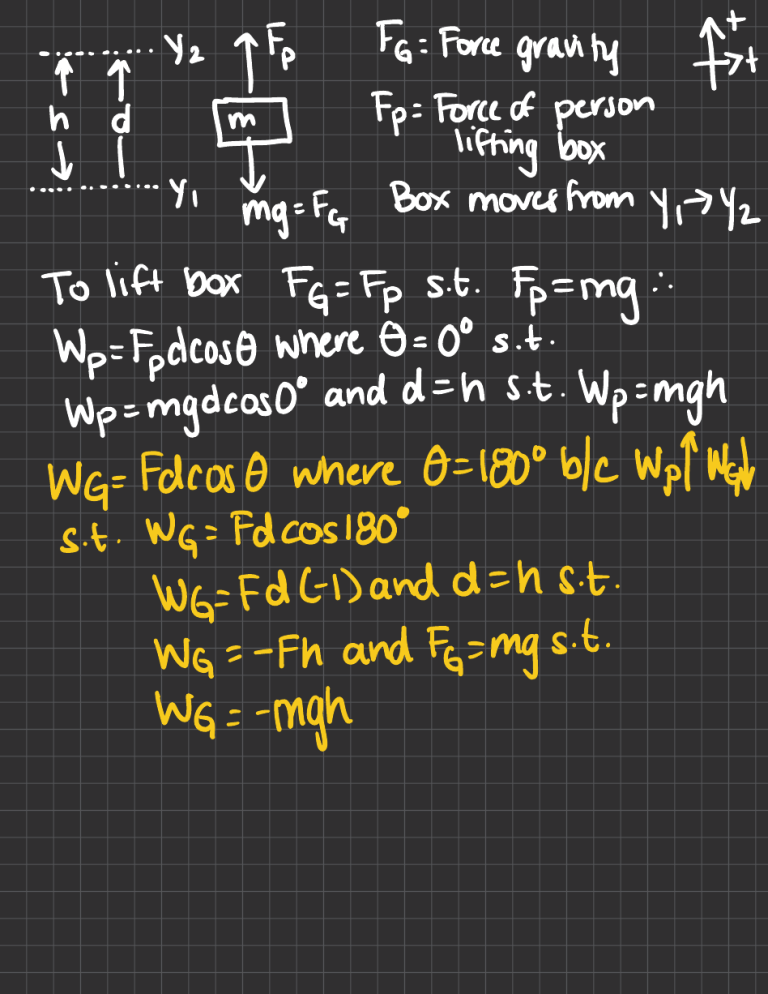 y₂ Fp F_G = Force gravity ↑+
h d m →+
Fp = Force of person
lifting box
y₁ mg = F_G Box moves from y₁→y₂
To lift box F_G = Fp s.t. Fp = mg ∴
Wp = Fpdcosθ where θ = 0° s.t.
Wp = mgdcos0° and d = h s.t. Wp = mgh
W_G = Fdcosθ where θ = 180° b/c Wp↑ W_G↓
s.t. W_G = Fdcos180°
W_G = Fd(-1) and d = h s.t.
W_G = -Fh and F_G = mg s.t.
W_G = -mgh